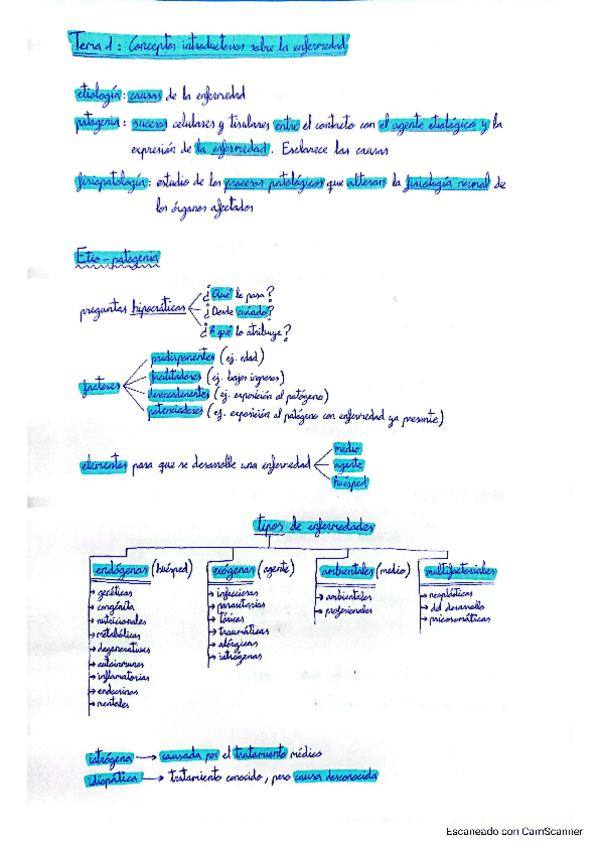 Tema 1: Conceptos introductorios sobre la enfermedad
etiología: causas de la enfermedad
patogenia: sucesos celulares y tisulares entre el contacto con el agente etiológico y la
expresión de la enfermedad. Esclarece las causas
fisiopatología: estudio de los procesos patológicos que alteran la fisiología normal de
los órganos afectados
Etio-patogenia
preguntas hipocráticas
¿Qué le pasa?
¿Desde cuándo?
¿A qué lo atribuye?
factores
predisponentes (ej. edad)
facilitadores (ej. bajos ingresos)
desencadenantes (ej. exposición al patógeno)
potenciadores (ej. exposición al patógeno con enfermedad ya presente)
elementos para que se desarrolle una enfermedad
medio
agente
huésped
tipos de enfermedades
endógenas (huésped)
→ genéticas
→ congénita
→ nutricionales
→ metabólicas
→ degenerativas
→ autoinmunes
→ inflamatorias
→ endocrinas
→ mentales
exógenas (agente)
→ infecciosas
→ parasitarias
→ tóxicas
→ traumáticas
→ alérgicas
→ iatrógenas
ambientales (medio)
→ ambientales
→ profesionales
multifactoriales
→ neoplásticas
→ del desarrollo
→ psicosomáticas
iatrógena → causada por el tratamiento médico
idiopática → tratamiento conocido, pero causa desconocida
Escaneado con CamScanner